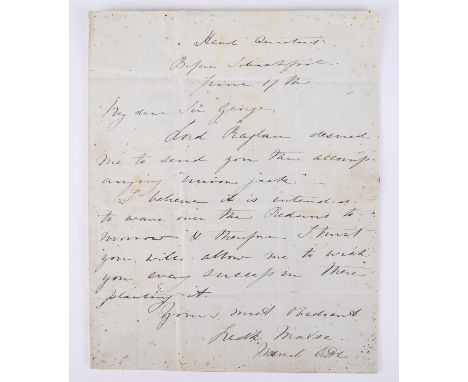 Head Quarters
Before Sebastopol
June 17th
My dear Sir George,
Lord Raglan desired
me to send you the accomp-
anying "union jack" -
I believe it is intended
to wave over the Redans to-
morrow & therefore I trust
you will allow me to wish
you every success in there
planting it.
Yours most obedient
Fredk Maxse
Naval ADC